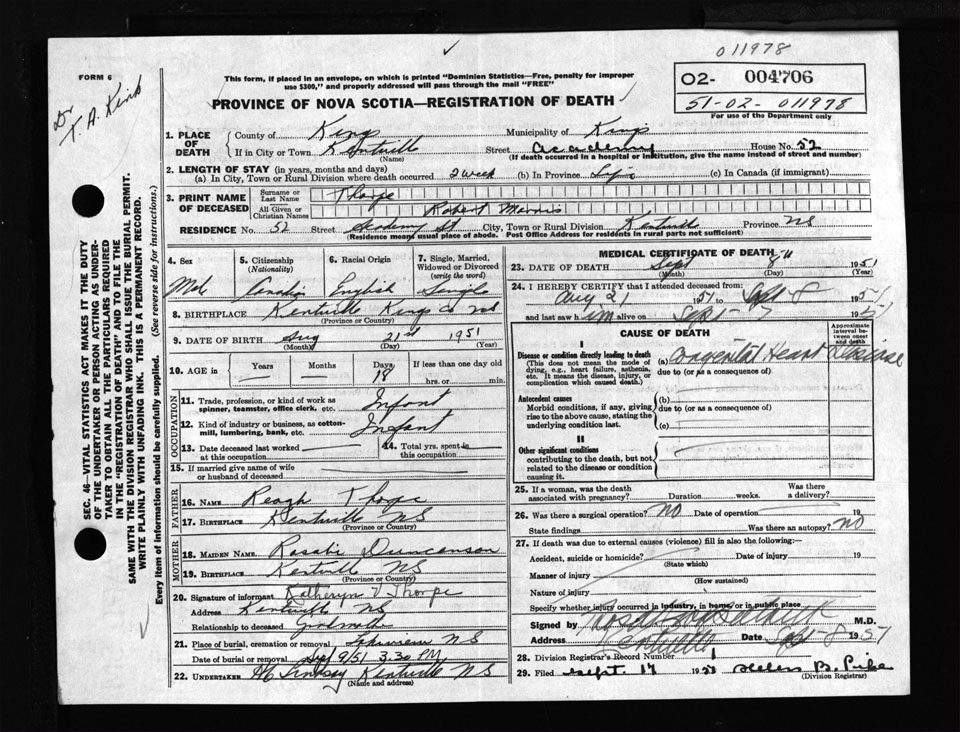 011978
FORM 6
This form, if placed in an envelope, on which is printed "Dominion Statistics—Free, penalty for improper
use $300," and properly addressed will pass through the mail "FREE"
02- 004706
51-02-011978
For use of the Department only
PROVINCE OF NOVA SCOTIA—REGISTRATION OF DEATH
Dr
SEC. 46—VITAL STATISTICS ACT MAKES IT THE DUTY
OF THE UNDERTAKER OR PERSON ACTING AS UNDER-
TAKER TO OBTAIN ALL THE PARTICULARS REQUIRED
IN THE "REGISTRATION OF DEATH" AND TO FILE THE
SAME WITH THE DIVISION REGISTRAR WHO SHALL ISSUE THE BURIAL PERMIT.
WRITE PLAINLY WITH UNFADING INK. THIS IS A PERMANENT RECORD.
Every item of information should be carefully supplied. (See reverse side for instructions.)
1. PLACE OF DEATH County of Kings Municipality of Kings
If in City or Town Kentville Street Academy House No. 52
(Name) (If death occurred in a hospital or institution, give the name instead of street and number)
2. LENGTH OF STAY (in years, months and days)
(a) In City, Town or Rural Division where death occurred 2 week (b) In Province Life (c) In Canada (if immigrant)
3. PRINT NAME OF DECEASED Surname or Last Name Thorpe
All Given or Christian Names Robert Morris
RESIDENCE No. 52 Street Academy St City, Town or Rural Division Kentville Province NS
(Residence means usual place of abode. Post Office Address for residents in rural parts not sufficient)
4. Sex 5. Citizenship (Nationality) 6. Racial Origin 7. Single, Married, Widowed or Divorced (write the word)
Male Canadian English Single
8. BIRTHPLACE Kentville Kings Co NS
(Province or Country)
9. DATE OF BIRTH Aug 21st 1951
(Month) (Day) (Year)
10. AGE in Years Months Days 18 If less than one day old hrs. or min.
OCCUPATION
11. Trade, profession, or kind of work as spinner, teamster, office clerk, etc. Infant
12. Kind of industry or business, as cotton-mill, lumbering, bank, etc. Infant
13. Date deceased last worked at this occupation 14. Total yrs. spent in this occupation
15. If married give name of wife or husband of deceased
FATHER
16. NAME Reagh Thorpe
17. BIRTHPLACE Kentville NS
(Province or Country)
MOTHER
18. MAIDEN NAME Rosalie Duncanson
19. BIRTHPLACE Kentville NS
(Province or Country)
20. Signature of informant Katheryn V Thorpe
Address Kentville NS
Relationship to deceased Grandmother
21. Place of burial, cremation or removal NS
Date of burial or removal Sep 9/51 3.30 PM
22. UNDERTAKER Lindsay Kentville NS
(Name and address)
MEDICAL CERTIFICATE OF DEATH
23. DATE OF DEATH Sept 8th 1951
(Month) (Day) (Year)
24. I HEREBY CERTIFY that I attended deceased from:
Aug 21 1951 to Sept 8 1951
and last saw him alive on Sept 7 1951
CAUSE OF DEATH Approximate interval between onset and death
I
Disease or condition directly leading to death (a) Congenital Heart Disease
(This does not mean the mode of dying, e.g., heart failure, asthenia, etc. It means the disease, injury, or complication which caused death.) due to (or as a consequence of)
Antecedent causes (b)
Morbid conditions, if any, giving rise to the above cause, stating the underlying condition last. due to (or as a consequence of)
(c)
II
Other significant conditions
contributing to the death, but not related to the disease or condition causing it.
25. If a woman, was the death associated with pregnancy? Duration weeks. Was there a delivery?
26. Was there a surgical operation? NO Date of operation 19
State findings Was there an autopsy? NO
27. If death was due to external causes (violence) fill in also the following:
Accident, suicide or homicide? Date of injury 19
(State which)
Manner of injury
(How sustained)
Nature of injury
Specify whether injury occurred in industry, in home, or in public place
Signed by M.D.
Address Kentville Date Sept-8 1951
28. Division Registrar's Record Number
29. Filed Sept. 17 1951 Helen B.
(Division Registrar)